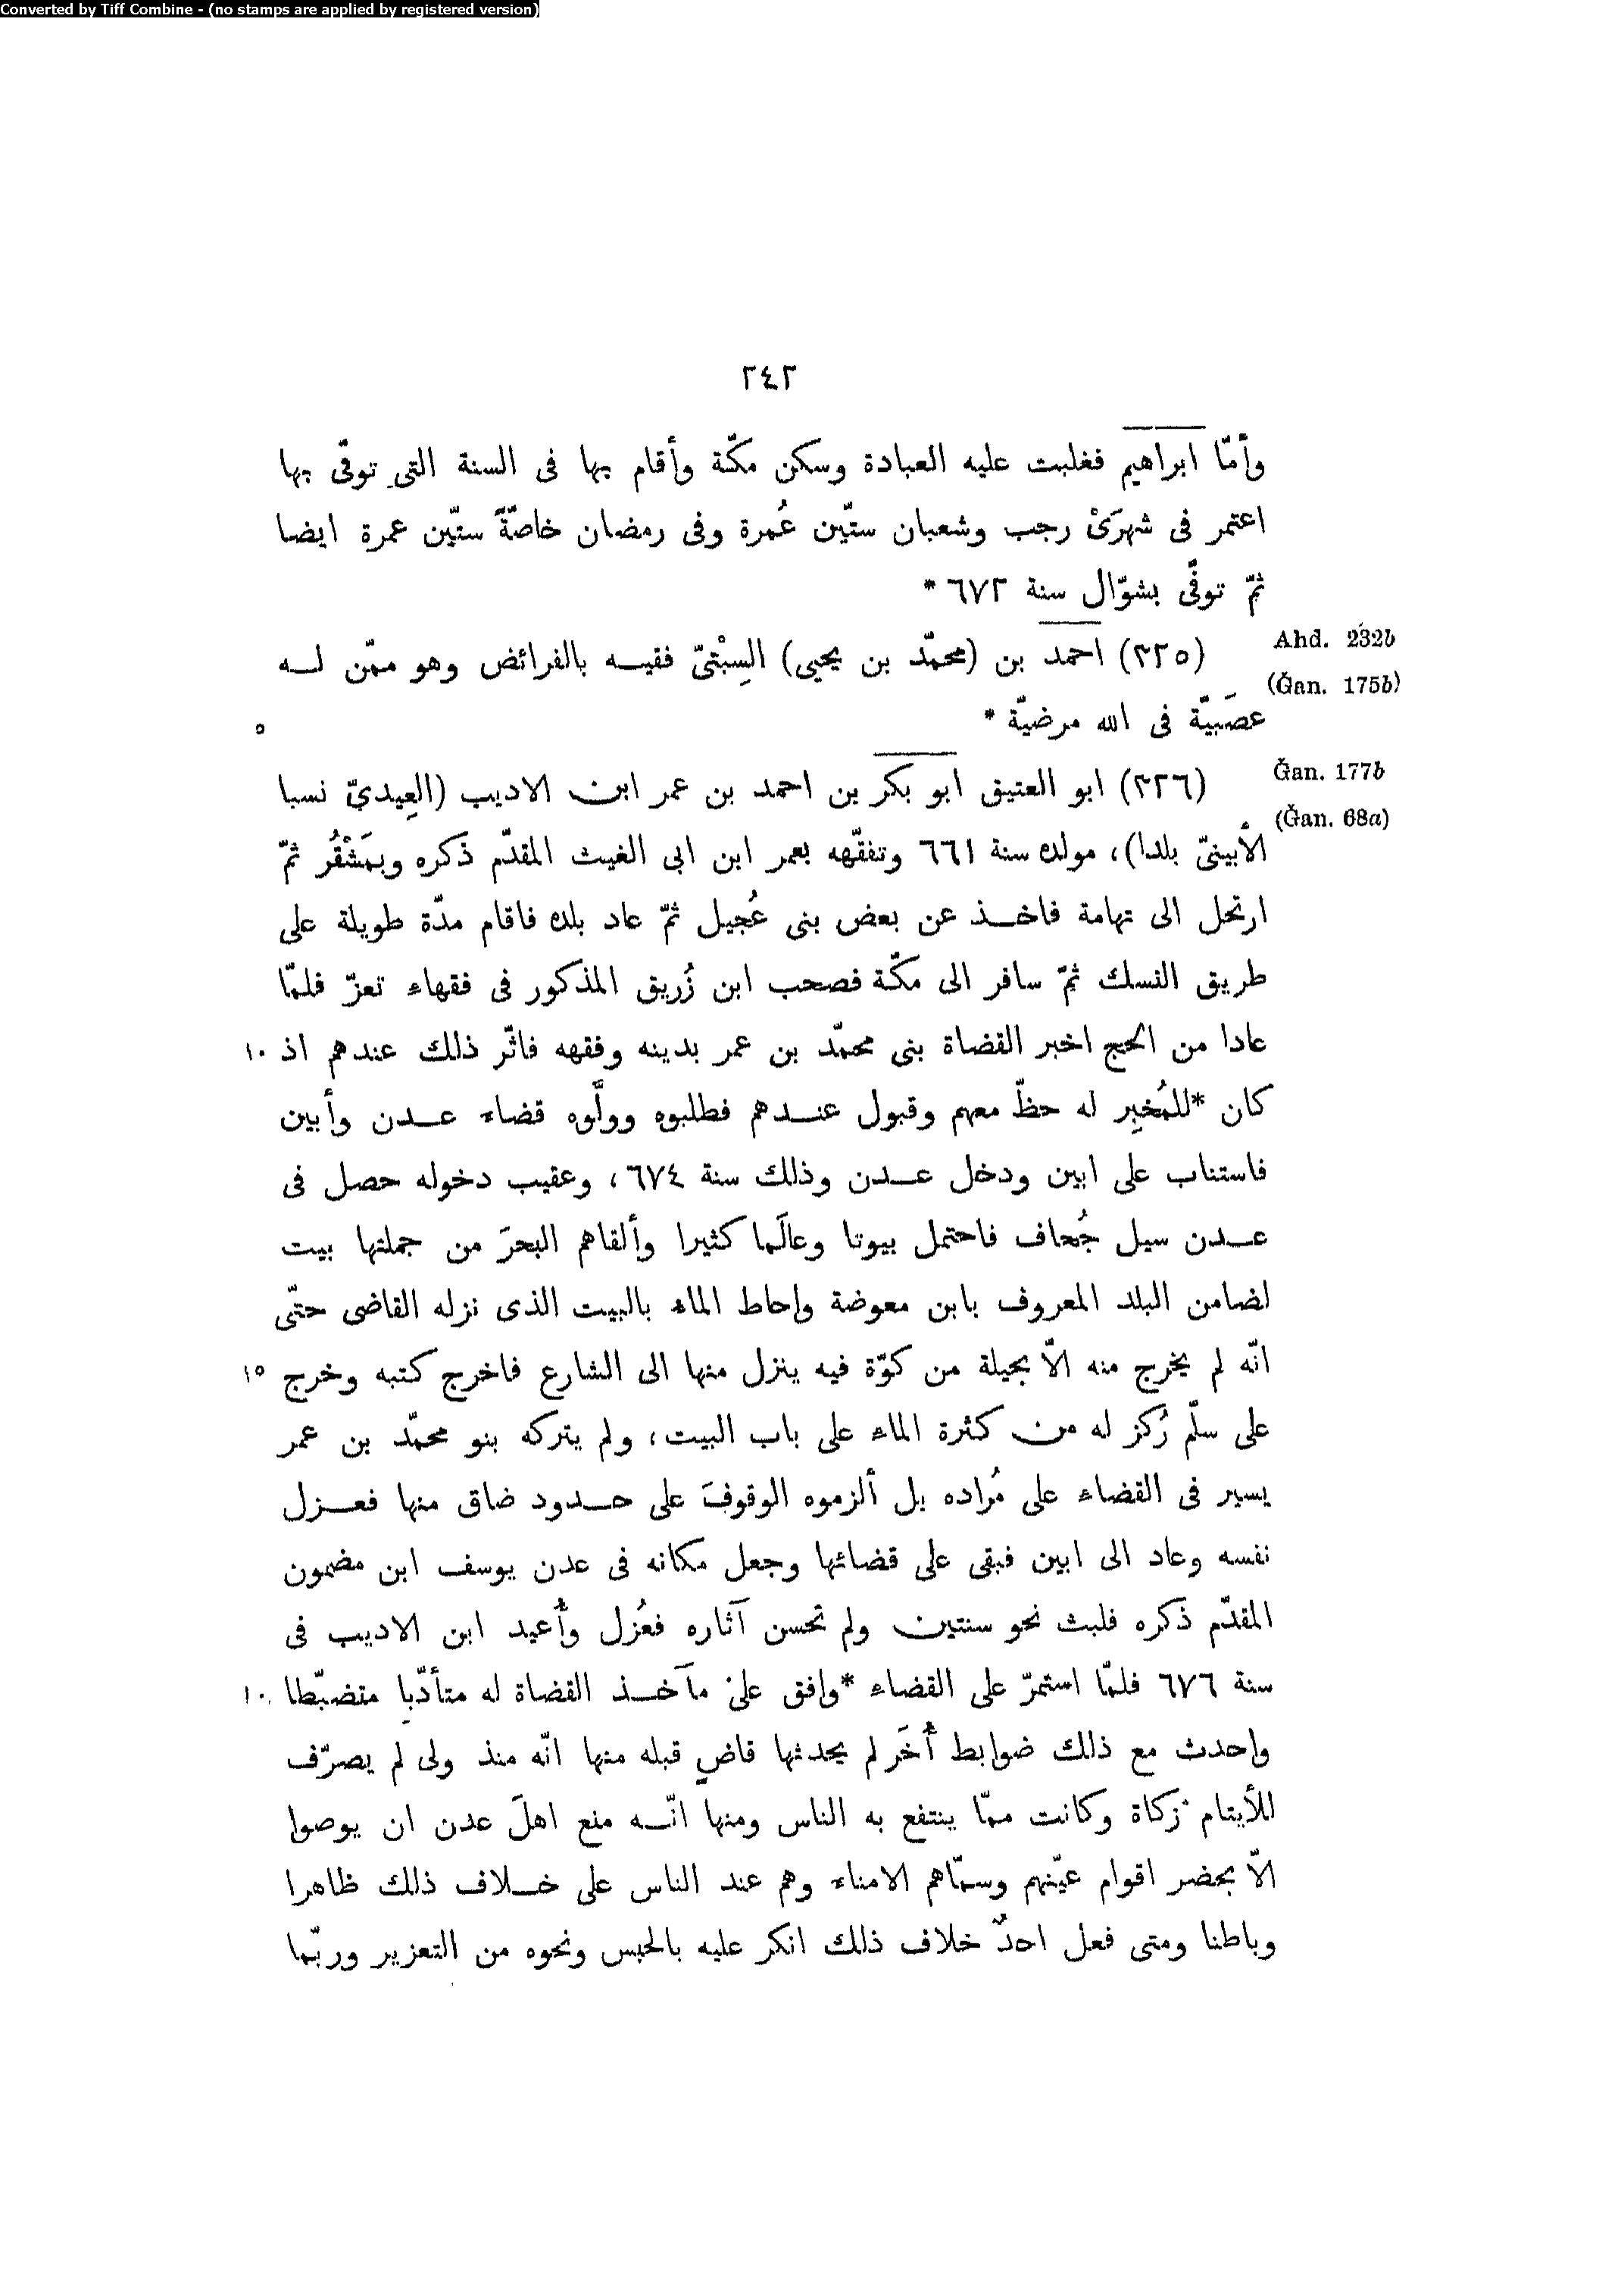 Converted by Tiff Combine - (no stamps are applied by registered version)
٢٤٢
وأمّا ابراهيم فغلبت عليه العبادة وسكن مكّة وأقام بها فى السنة التى توفّى بها
اعتمر فى شهرَىْ رجب وشعبان ستّين عُمرة وفى رمضان خاصّةً ستّين عمرة ايضا
ثمّ توفّى بشوّال سنة ٦٧٢ *
(٢٢٥) احمد بن (محمّد بن يحيى) السِبْتىّ فقيه بالفرائض وهو ممّن له
Ahd. 232b
(Ğan. 175b)
عصَبيّة فى الله مرضيّة *
٥
(٢٢٦) ابو العتيق ابو بكر بن احمد بن عمر ابن الاديب (العِيدىّ نسبا
Ğan. 177b
(Ğan. 68a)
الأبينىّ بلدا)، مولده سنة ٦٦١ وتفقّهه بعمر ابن ابى الغيث المقدّم ذكره وبمَشْقُر ثمّ
ارتحل الى تهامة فاخذ عن بعض بنى عُجيل ثمّ عاد بلده فاقام مدّة طويلة على
طريق النسك ثمّ سافر الى مكّة فصحب ابن زُريق المذكور فى فقهاء تعزّ فلمّا
عادا من الحجّ اخبر القضاة بنى محمّد بن عمر بدينه وفقهه فاثّر ذلك عندهم اذ ١٠
كان *للمُخبِر له حظّ معهم وقبول عندهم فطلبوه وولَّوه قضاء عدن وأبين
فاستناب على ابين ودخل عدن وذلك سنة ٦٧٤، وعقيب دخوله حصل فى
عدن سيل جُحاف فاحتمل بيوتا وعالَما كثيرا وألقاهم البحرَ من جملتها بيت
لضامن البلد المعروف بابن معوضة واحاط الماء بالبيت الذى نزله القاضى حتّى
انّه لم يخرج منه الاّ بحيلة من كوّة فيه ينزل منها الى الشارع فاخرج كتبه وخرج ١٥
على سلّم رُكز له من كثرة الماء على باب البيت، ولم يتركه بنو محمّد بن عمر
يسير فى القضاء على مُراده بل ألزموه الوقوفَ على حدود ضاق منها فعزل
نفسه وعاد الى ابين فبقى على قضائها وجعل مكانه فى عدن يوسف ابن مضمون
المقدّم ذكره فلبث نحو سنتين ولم تحسن آثاره فعُزل وأُعيد ابن الاديب فى
سنة ٦٧٦ فلمّا استمرّ على القضاء *وافق على مآخذ القضاة له متأدّبا متضبّطا ٢٠
واحدث مع ذلك ضوابط أُخَر لم يحدثها قاضٍ قبله منها انّه منذ ولى لم يصرّف
للأيتام زكاة وكانت ممّا ينتفع به الناس ومنها انّه منع اهلَ عدن ان يوصوا
الاّ بحضر اقوام عيّنهم وسمّاهم الامناء وهم عند الناس على خلاف ذلك ظاهرا
وباطنا ومتى فعل احدٌ خلاف ذلك انكر عليه بالحبس ونحوه من التعزير وربّما